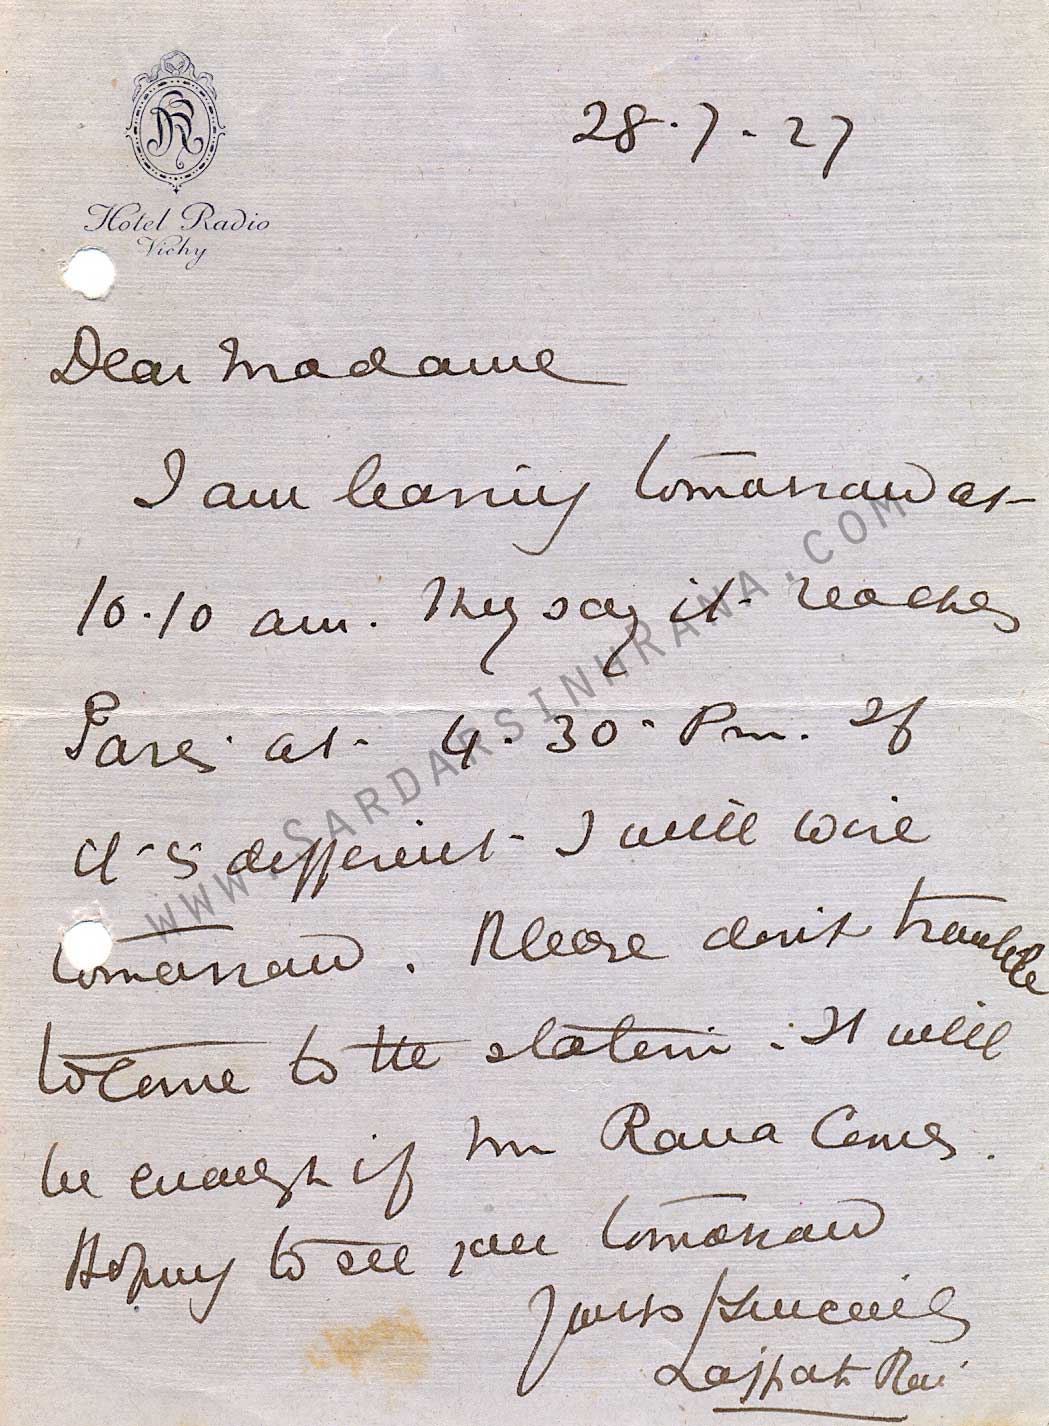 28.7.27
Hotel Radio
Vichy
Dear Madame
I am leaving tomorrow at
10.10 am. They say it reaches
Paris at 4.30 Pm. If
it is different I will wire
tomorrow. Please don't trouble
to come to the station. It will
be enough if Mr Rana comes.
Hoping to see you tomorrow
Yours sincerely
Lajpat Rai
WWW.SARDARSINHRANA.COM